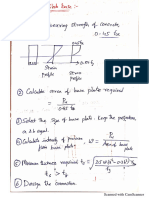 Slab Base :-
Bearing strength of concrete
0.45 fck
Strain Profile
Stress Profile
① Calculate area of base plate required
= Pu / 0.45 fck
② Select the size of base plate. Keep the projection a & b equal.
③ Calculate intensity of pressure from base plate. w =
④ Minimum thickness required ts =
ts > tf
⑤ Design the connection
Scanned with CamScanner